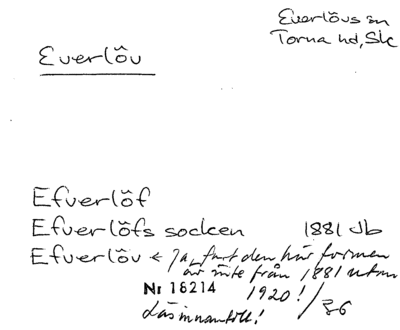 Everlöv
Everlövs sn
Torna hd, Sk
Efverlöf
Efverlöfs socken 1881 Jb
Efverlöv ← Ja, fast den här formen
är inte från 1881 utan
Nr 18214 1920! /
Läs innantill!